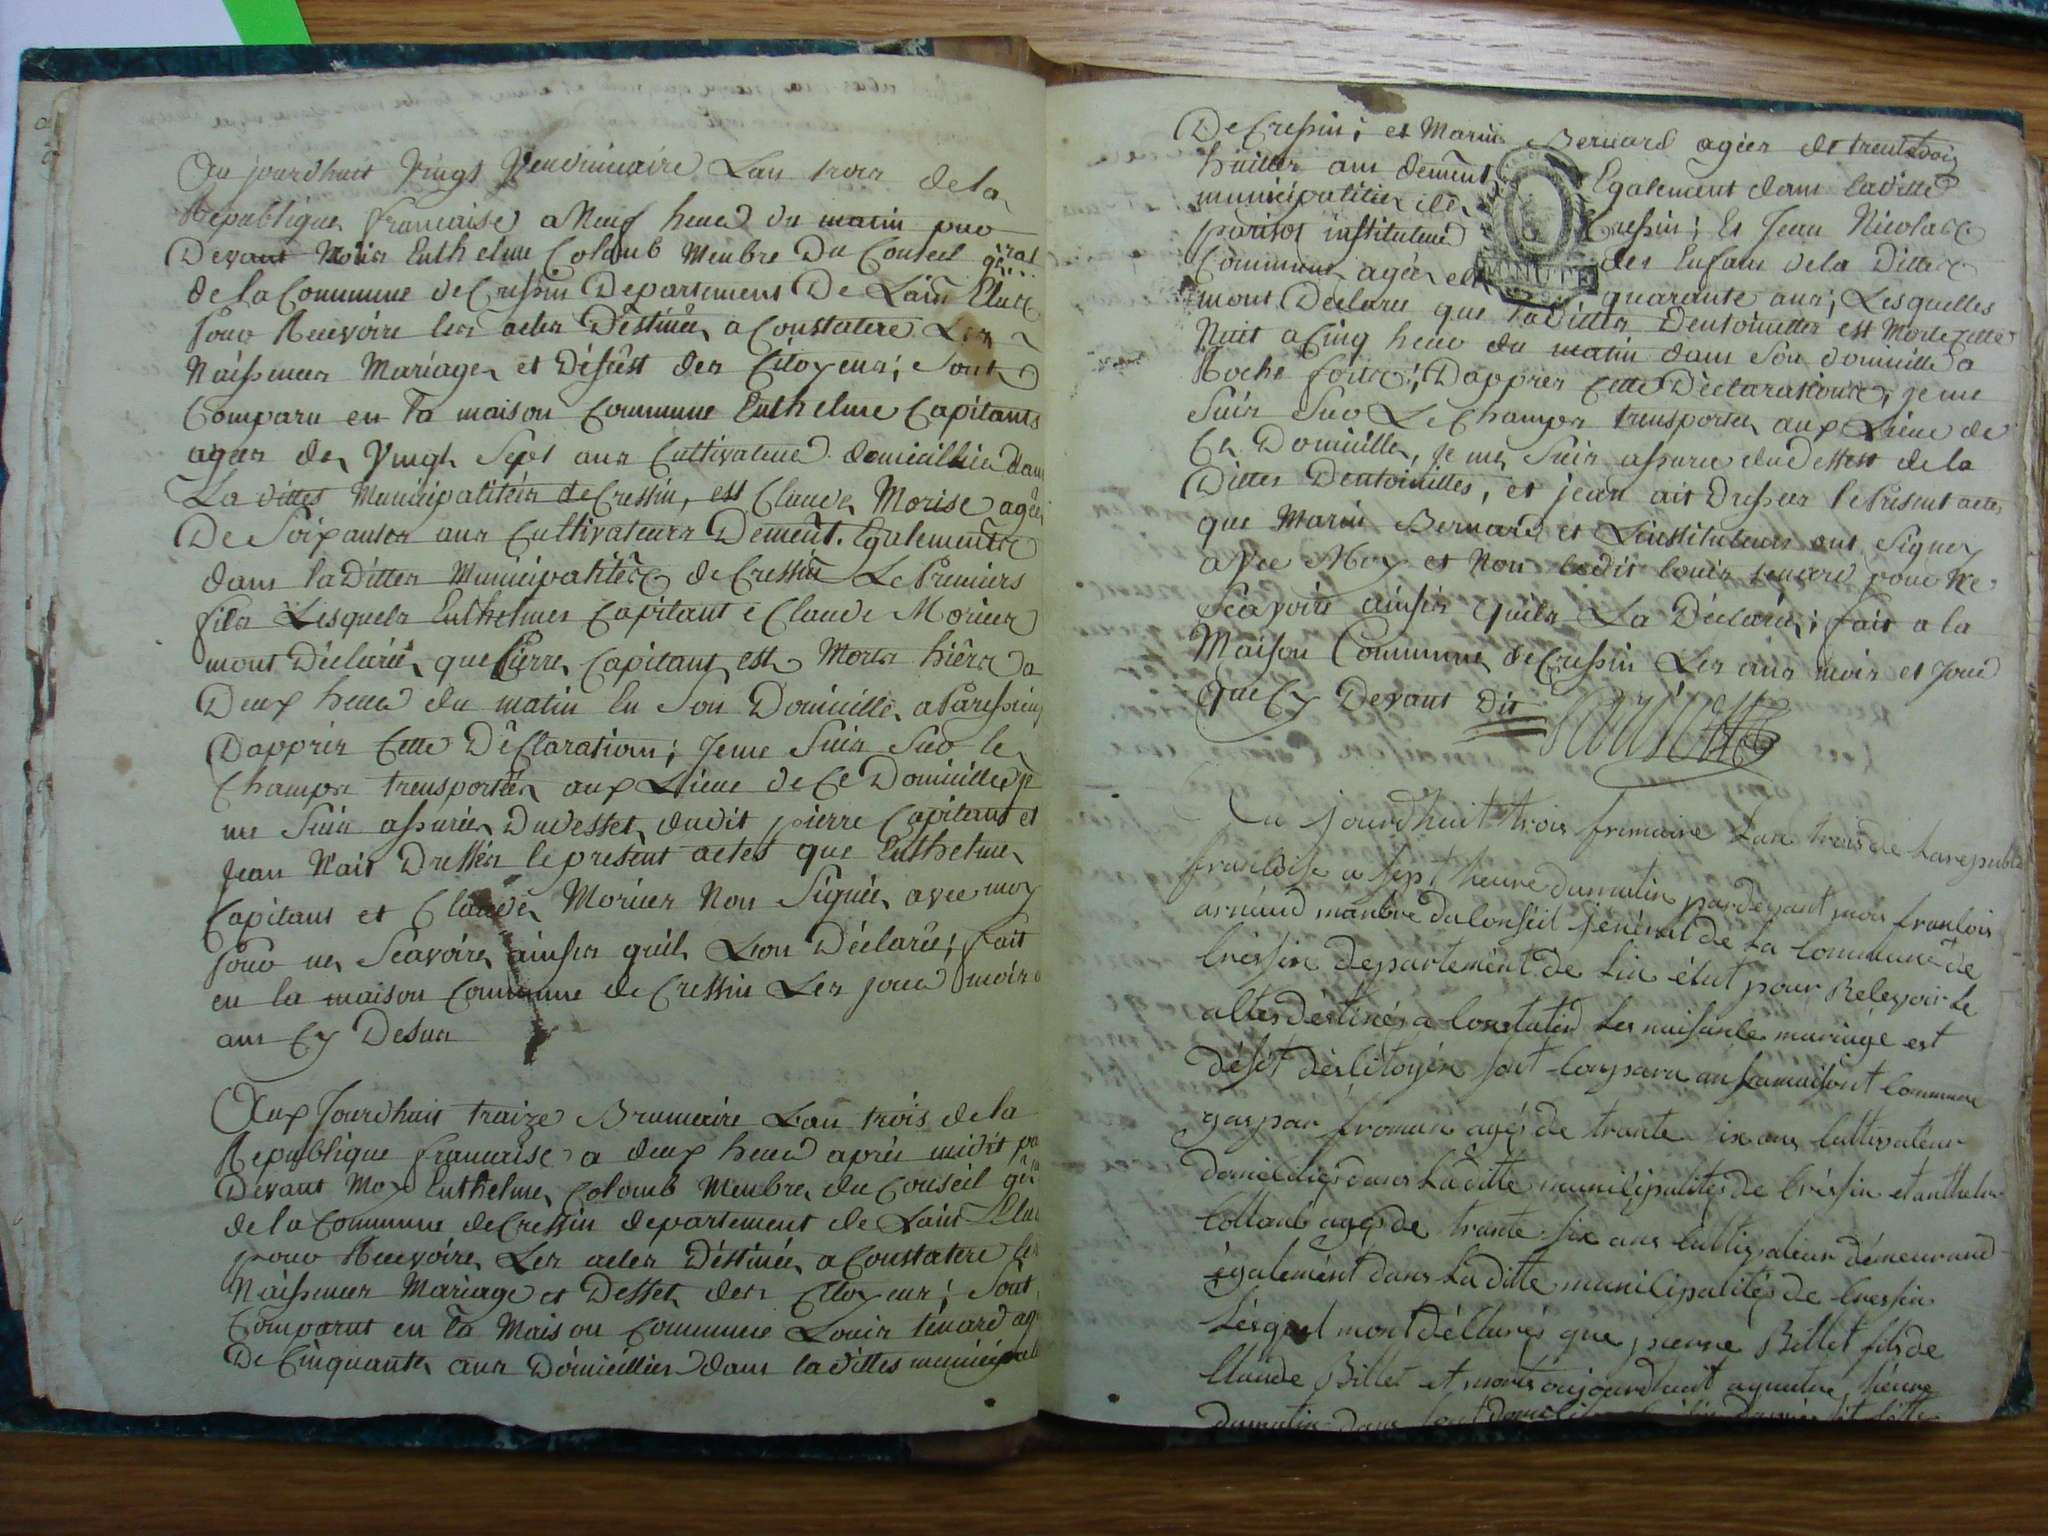 Au jourdhuit Vingt Vendimiaire Lan trois de la
Republique francaise a Neuf heure du matin pao
Devant Nous Enthelme Colomb Menbre Du Conseil géral
de La Commune de Cressin Departement De Lain Elue
pouo Recevoire les actes Dêstinée a Constatere Les
Naissances Mariages et Désest des Citoyens; Sont
Comparu en la maison Commune Enthelme Capitant
agées des Vingt Sept ans Cultivateure domicillies dans
La dittes Municipalitées de Cressin, est Claude Morise agée
De Soixantes ans Cultivateurs Dement. Egalements
dans la Dittes Municipalitée de Cressin Le Premiers
fils Lesquels Enthelmes Capitant e Claude Morises
mont Déclarée que Pierre Capitant est Morts hiêrs a
Deux heure du matin En Son Domicille a
Dapprés Cette Dêclarations; Jeme Suis Suo le
Champs transportés aux Lieue de Ce Domicille je
me Suis assurées Dudesset dudit pierre Capitant et
Jean Nait Dressés le present actes que Enthelme
Capitant et Claude Morises Non Signée avec moy
pouo ne Scavoire ainsis quils Lon Déclarée; fait
en la maison Commune de Cressin Les joure mois
ans Cy Desus
Aux Jourdhuit traize Brumaire Lan trois de la
Republique francaise a deux heure aprés midit pa
Devant Moy Enthelme Colomb Menbre du Conseil gé
de la Commune de Cressin departement de Lain Elue
pouo Recevoire Les actes Déstinée a Constatere les
Naissances Mariage et Desset des Citoyens; Sont
Comparut en la Maison Commune Louis tenard ag
De Cinquante ans Domicillies dans la dittes municipal
De Cressin; et Marin Bernard agées de trente
huittes ans dement Egalement dans la ditte
municipalitées de Cressin; Et Jean Nicolas
parisot instituteure des Enfans de la Ditte
Commune agées de quarante ans; Lesquelles
mont Declaree que la dittes Dentoinettes est Morte cette
Nuit a Cinq heuo du matin dans Son domicille a
Roche forte; Dappres Cette Dêclarations, je me
Suis Suo Le Champs transportés aux Lieue de
Ce Domicille, je me Suis assuree du dessest de la
Dittes Dentoinittes, et jean ait Dressés le Present actes
que Marin Bernard et Linstituteure ont Signez
avec Moy et Non ledit louis tenard pouo Ne
Scavoire ainsis quils La Déclarée; fait a la
Maison Commune de Cressin Les ans mois et Joure
que Cy Devant Dit
Parisot
Au jourdhuit trois frimaire Lan trois de La republi
franscoise a sept heure du matin pardevant moi francois
arnaud manbre du Conseil jénéral de La Commune de
Cressin departement de Lin élut pour Relevoir Le
actes déstinés a Constatér Les naisance mariage est
déset dés Citoyén sont Comparu an La maisont Commune
gaspar froman agés de trante six ans Cultivateur
domicilliés dans La ditte municipalités de Cressin et anthelme
Collonb agés de trante six ans Cultivateur démeurand
égalemént dans La ditte municipalités de Cressin
Lésquel mont déClarés que pierre Billet fils de
Claude Billet et morts aujourdhuit a quatre heure
du matin dans sont domicille